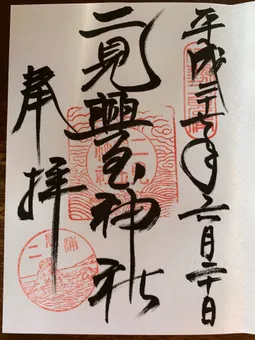 平成二十 年六月二十日
二見興玉神社
奉拝